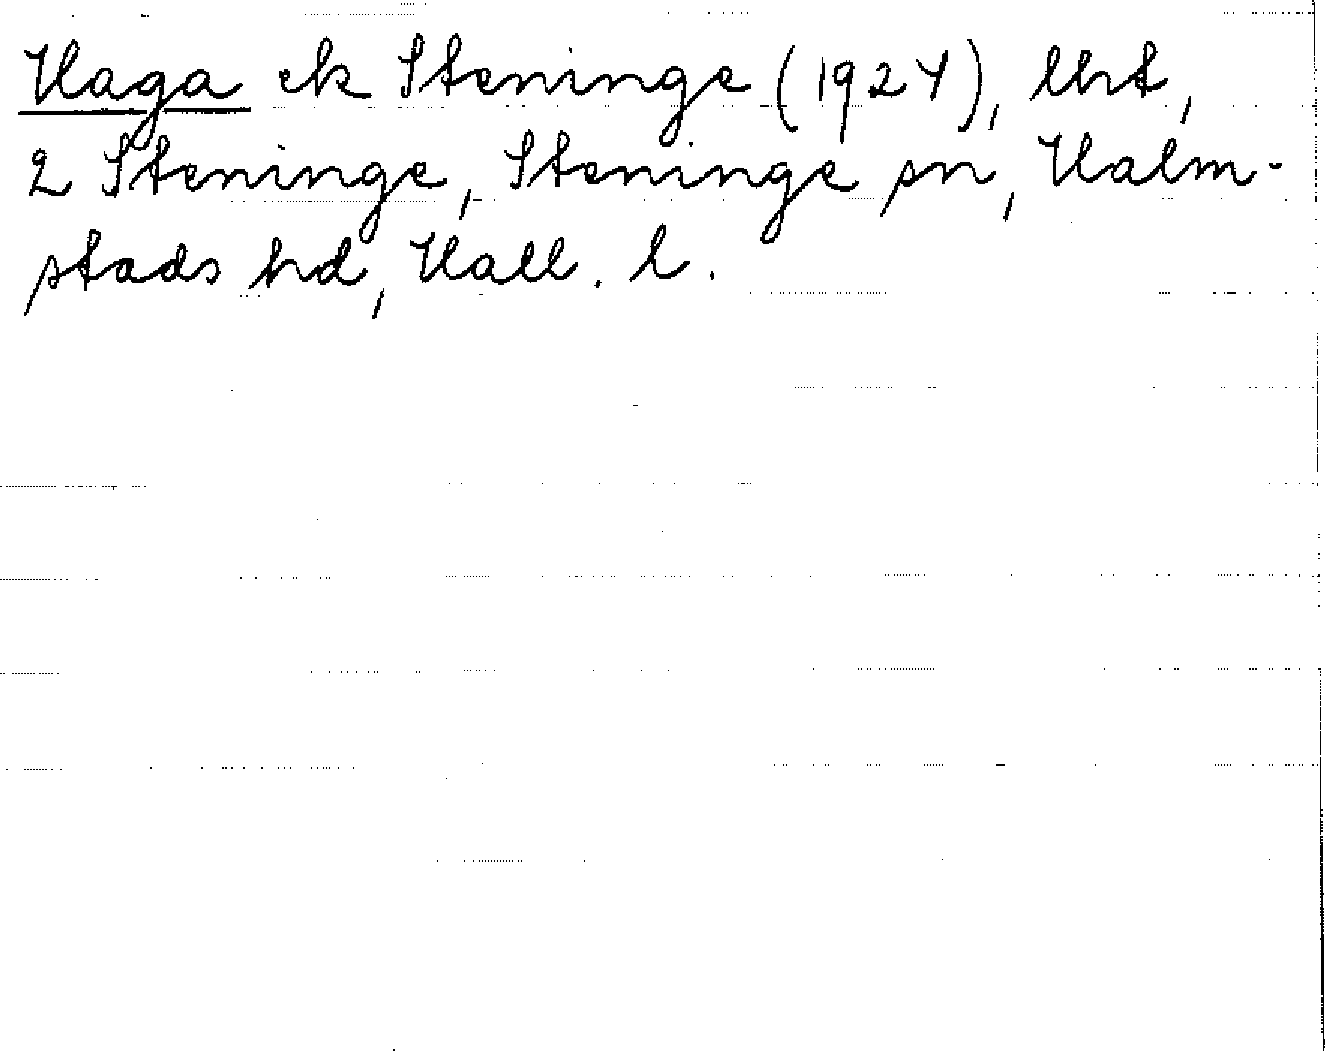 Haga ek Steninge (1924), lht,
2 Steninge, Steninge sn, Halm-
stads hd, Hall. l.